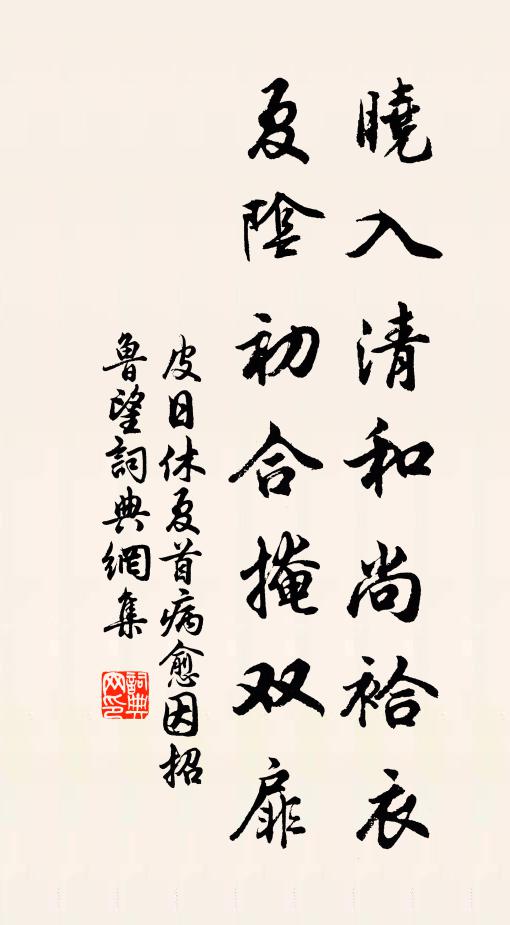 曉入清和尚袷衣
夏陰初合掩双扉
皮日休夏首病愈因招
魯望詞典網集
詞典网印